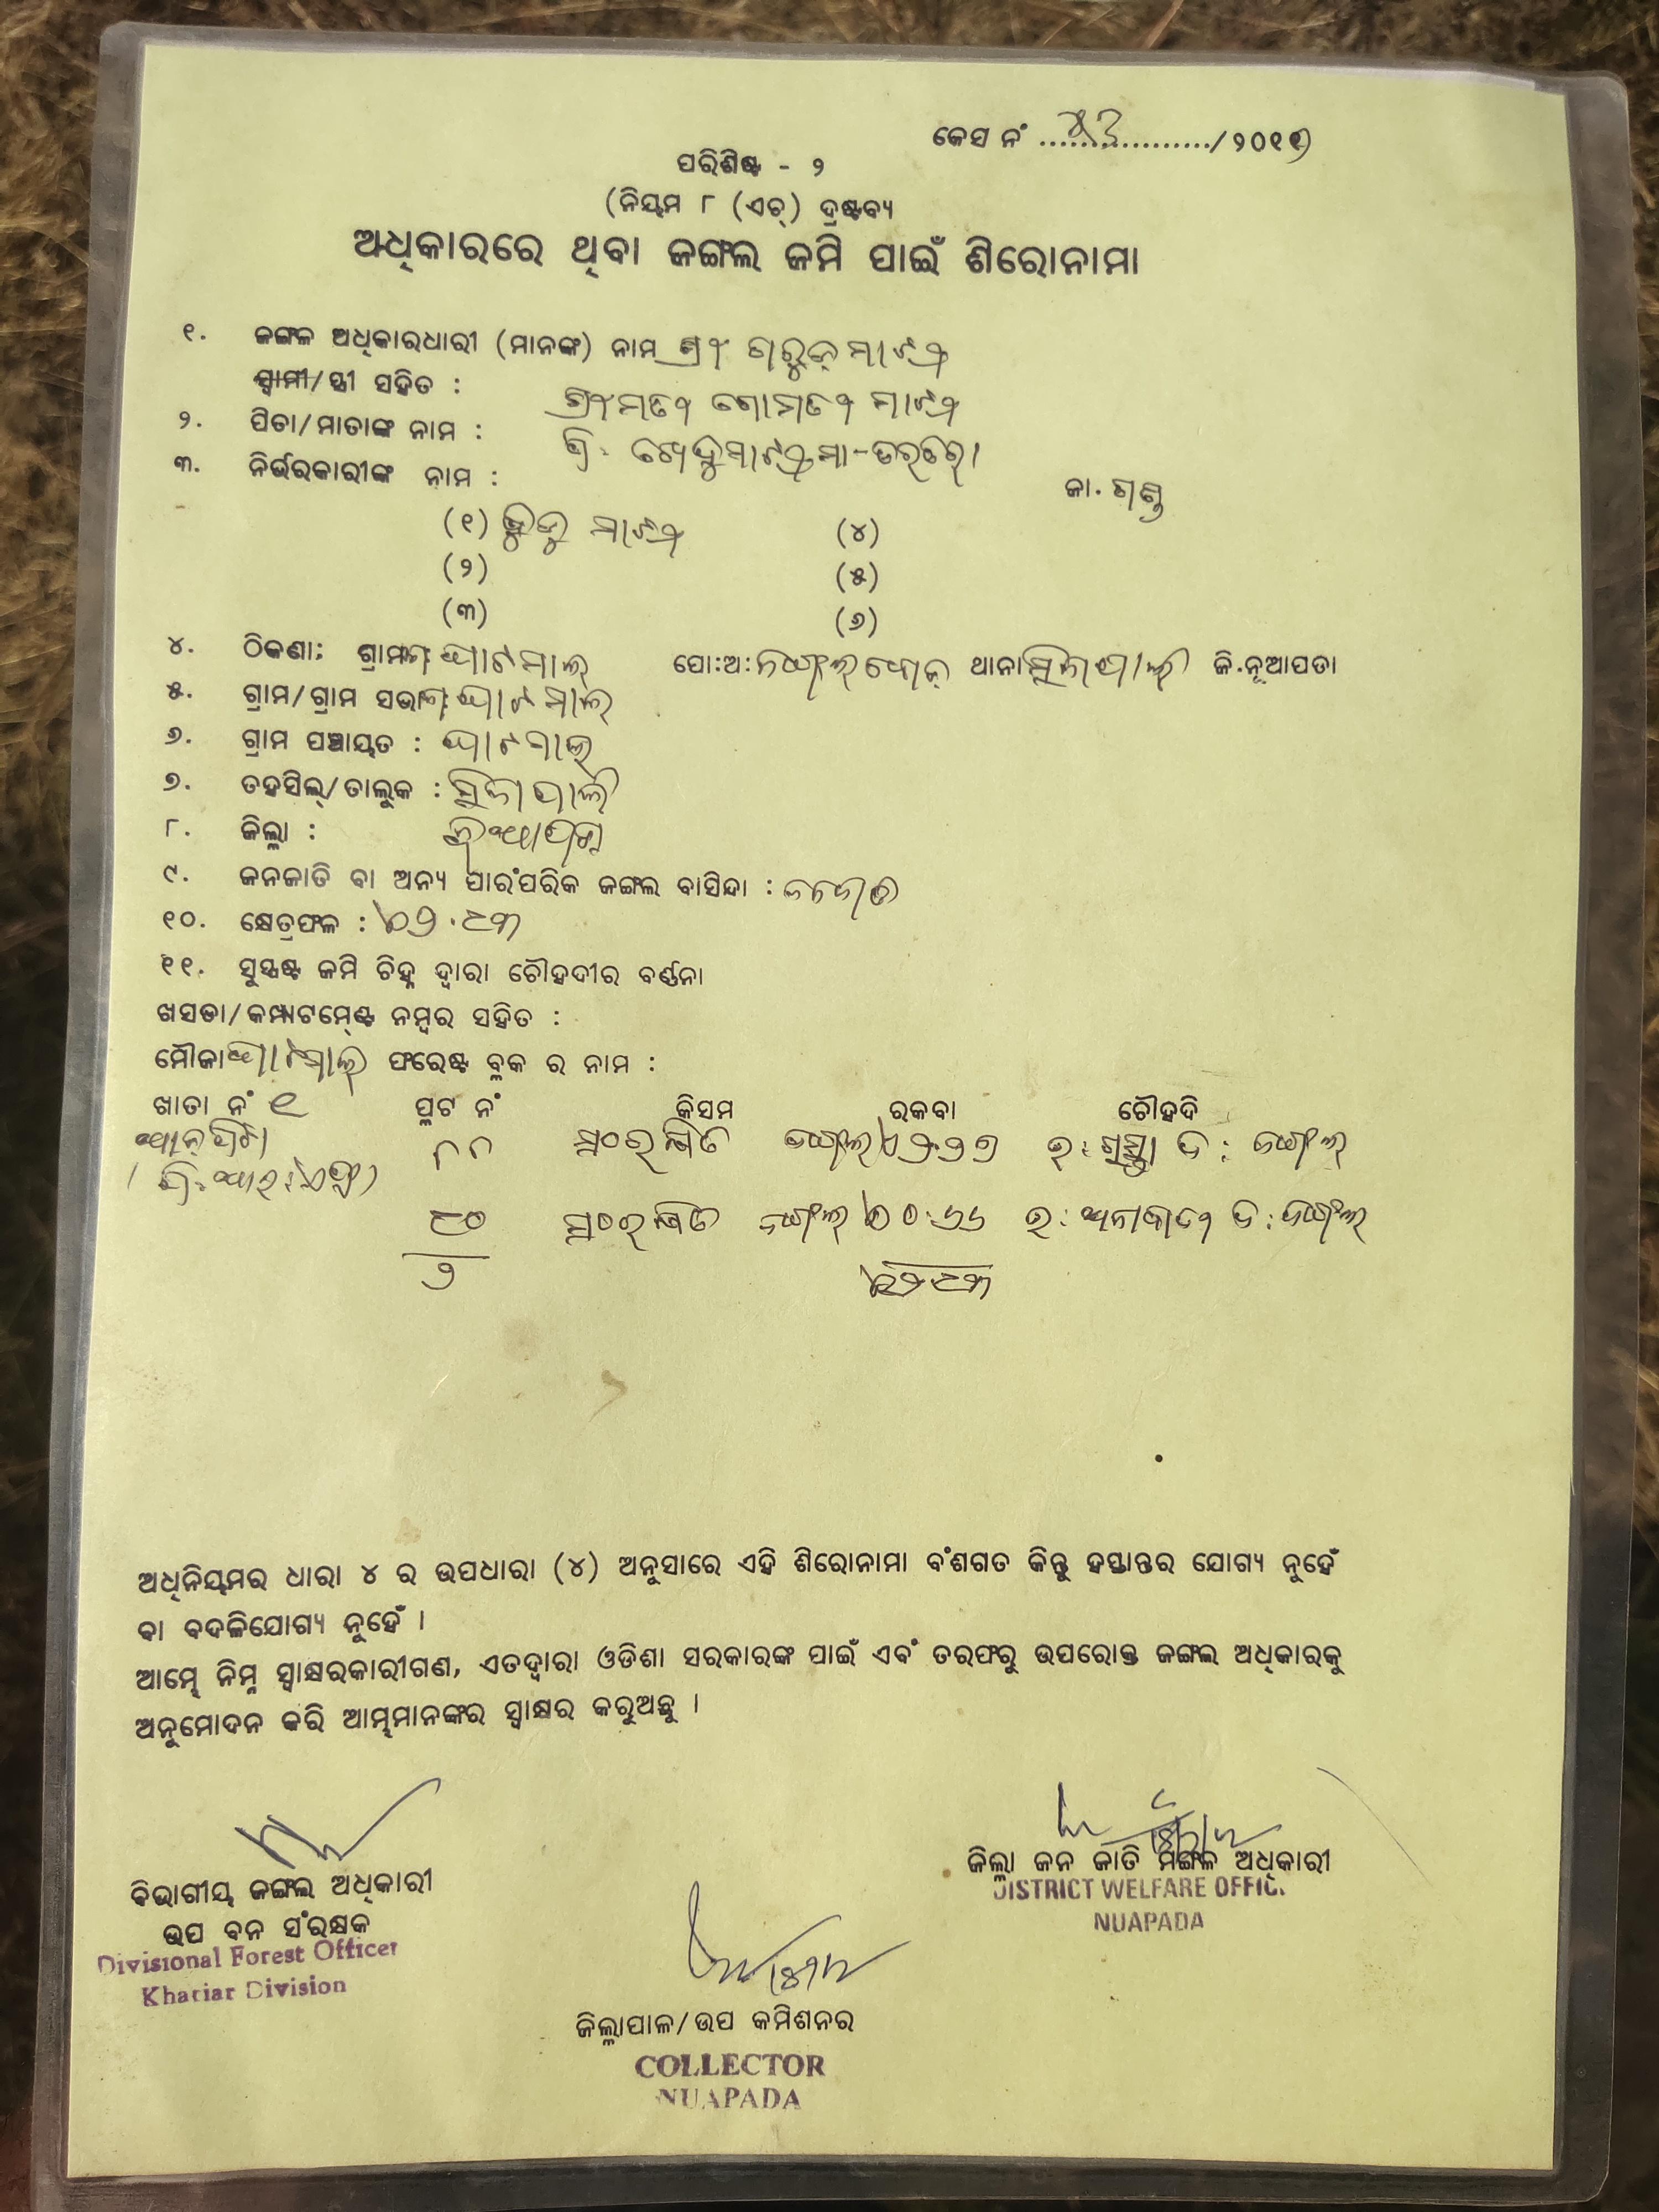 କେସ ନଂ ................./୨୦୧୧
ପରିଶିଷ୍ଟ - ୨
(ନିୟମ ୮ (ଏଚ୍) ଦ୍ରଷ୍ଟବ୍ୟ
ଅଧିକାରରେ ଥିବା ଜଙ୍ଗଲ ଜମି ପାଇଁ ଶିରୋନାମା
୧. ଜଙ୍ଗଲ ଅଧିକାରଧାରୀ (ମାନଙ୍କ) ନାମ ଶ୍ରୀ ଗରୁଡ଼ ମାଝୀ
ସ୍ୱାମୀ/ସ୍ତ୍ରୀ ସହିତ : ଶ୍ରୀମତୀ ଗୋମତୀ ମାଝୀ
୨. ପିତା/ମାତାଙ୍କ ନାମ : ପି:
୩. ନିର୍ଭରକାରୀଙ୍କ ନାମ : ଜା. ଗଣ୍ଡ
(୧) ମାଝୀ (୪)
(୨) (୫)
(୩) (୬)
୪. ଠିକଣା: ଗ୍ରାମ ଘାଟମାଲ୍ ପୋ:ଅ: ଥାନା ସିନାପାଲି ଜି.ନୂଆପଡା
୫. ଗ୍ରାମ/ଗ୍ରାମ ସଭା ଘାଟମାଲ୍
୬. ଗ୍ରାମ ପଞ୍ଚାୟତ : ଘାଟମାଲ୍
୭. ତହସିଲ୍/ତାଲୁକ : ସିନାପାଲି
୮. ଜିଲ୍ଲା : ନୂଆପଡା
୯. ଜନଜାତି ବା ଅନ୍ୟ ପାରଂପରିକ ଜଙ୍ଗଲ ବାସିନ୍ଦା : ଜନଜାତି
୧୦. କ୍ଷେତ୍ରଫଳ : ୦୨.୯୩
୧୧. ସୁସ୍ପଷ୍ଟ ଜମି ଚିହ୍ନ ଦ୍ୱାରା ଚୌହଦୀର ବର୍ଣ୍ଣନା
ଖସଡା/କମ୍ପାଟମେଣ୍ଟ ନମ୍ବର ସହିତ :
ମୌଜା ଘାଟମାଲ୍ ଫରେଷ୍ଟ ବ୍ଲକ ର ନାମ :
ଖାତା ନଂ ୧ ପ୍ଲଟ ନଂ କିସମ ରକବା ଚୌହଦି
୮୮ ସଂରକ୍ଷିତ ଜଙ୍ଗଲ ୦୨.୨୭ ଉ: ଦ: ଜଙ୍ଗଲ
୯୦ ସଂରକ୍ଷିତ ଜଙ୍ଗଲ ୦୦.୬୬ ଉ: ଅନାବାଦୀ ଦ: ଜଙ୍ଗଲ
୨ ୦୨.୯୩
ଅଧିନିୟମର ଧାରା ୪ ର ଉପଧାରା (୪) ଅନୁସାରେ ଏହି ଶିରୋନାମା ବଂଶଗତ କିନ୍ତୁ ହସ୍ତାନ୍ତର ଯୋଗ୍ୟ ନୁହେଁ
ବା ବଦଳିଯୋଗ୍ୟ ନୁହେଁ ।
ଆମ୍ଭେ ନିମ୍ନ ସ୍ୱାକ୍ଷରକାରୀଗଣ, ଏତଦ୍ୱାରା ଓଡିଶା ସରକାରଙ୍କ ପାଇଁ ଏବଂ ତରଫରୁ ଉପରୋକ୍ତ ଜଙ୍ଗଲ ଅଧିକାରକୁ
ଅନୁମୋଦନ କରି ଆମ୍ଭମାନଙ୍କର ସ୍ୱାକ୍ଷର କରୁଅଛୁ ।
ଜିଲ୍ଲା ଜନ ଜାତି ମଙ୍ଗଳ ଅଧିକାରୀ
DISTRICT WELFARE OFFIC.
NUAPADA
ବିଭାଗୀୟ ଜଙ୍ଗଲ ଅଧିକାରୀ
ଉପ ବନ ସଂରକ୍ଷକ
Divisional Forest Officer
Khariar Division
ଜିଲ୍ଲାପାଳ/ଉପ କମିଶନର
COLLECTOR
NUAPADA